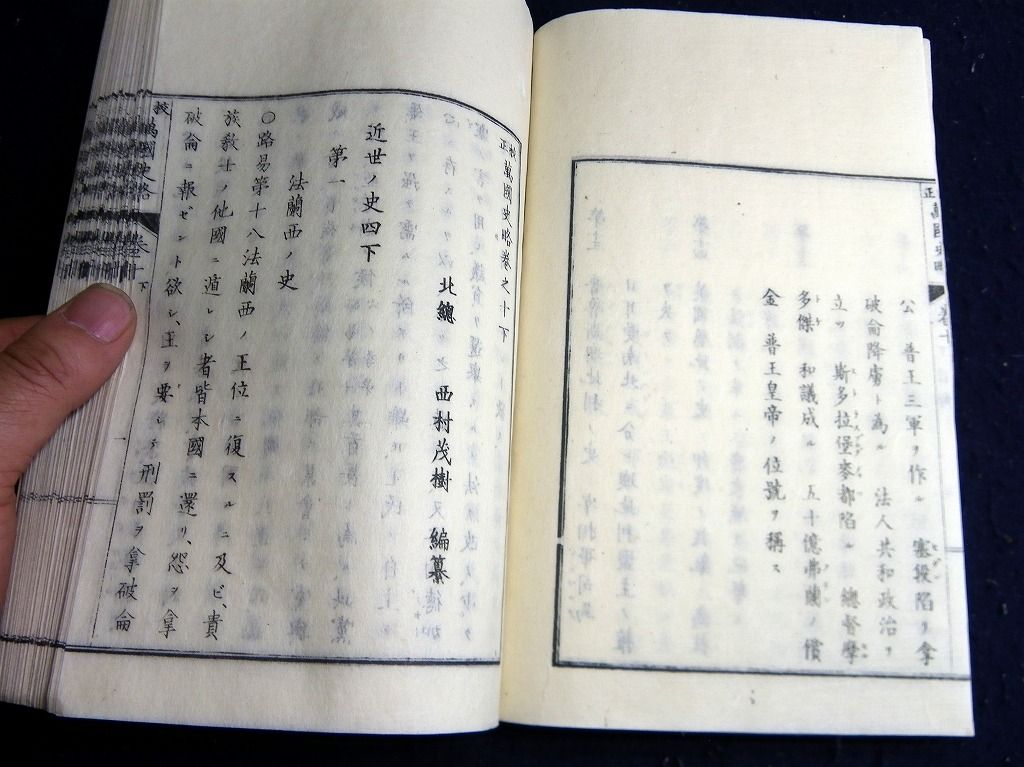 公 普王三軍ヲ作ル 塞段陷リ拿
破侖降虜ト為ル 法人共和政治ヲ
立ツ 斯多拉堡麥都陷ル 總督摩
多傑 和議成ル 五十億弗蘭ノ償
金 普王皇帝ノ位號ヲ稱ス
校正萬國史略卷之十下
北總 西村茂樹 編纂
近世ノ史四下
第一
法蘭西ノ史
〇路易第十八法蘭西ノ王位ニ復スルニ及ビ、貴
族敎士ノ他國ニ遁レシ者皆本國ニ還リ、怨ヲ拿
破侖ニ報ゼント欲シ、王ヲ要シテ刑罰ヲ拿破侖
萬國史略